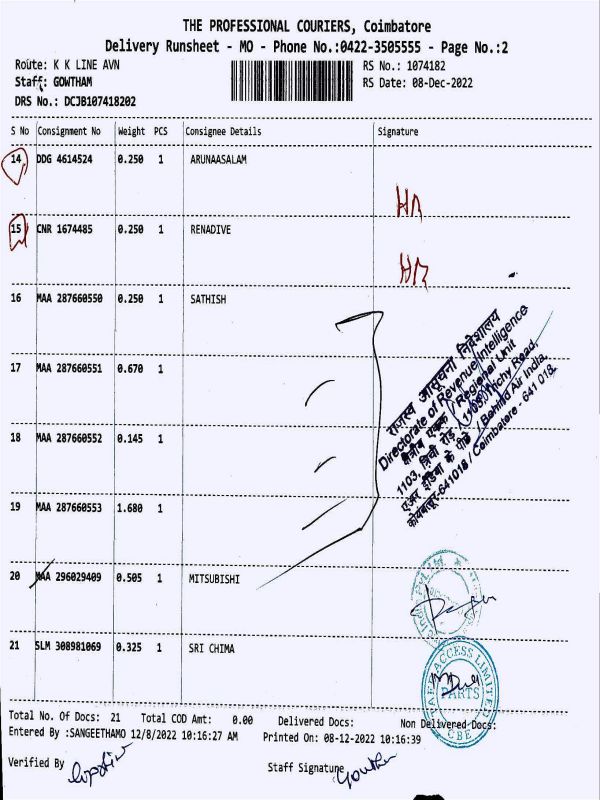 THE PROFESSIONAL COURIERS, Coimbatore
Delivery Runsheet - MO - Phone No.:0422-3505555 - Page No.:2
Route: K K LINE AVN
RS No.: 1074182
Staff: GOWTHAM
RS Date: 08-Dec-2022
DRS No.: DCJB107418202
S No Consignment No Weight PCS Consignee Details Signature
14 DDG 4614524 0.250 1 ARUNAASALAM
15 CNR 1674485 0.250 1 RENADIVE
16 MAA 287660550 0.250 1 SATHISH
17 MAA 287660551 0.670 1
18 MAA 287660552 0.145 1
19 MAA 287660553 1.680 1
राजस्व आसूचना निदेशालय
Directorate of Revenue Intelligence
क्षेत्रीय एकक / Regional Unit
1103, त्रिची रोड़ / 1103, Trichy Road,
एअर इंडिया के पीछे / Behind Air India,
कोयंबत्तूर-641018 / Coimbatore - 641 018.
20 MAA 296029409 0.505 1 MITSUBISHI
21 SLM 308981069 0.325 1 SRI CHIMA
ACCESS LIMITED
PARTS
CBE
Total No. Of Docs: 21 Total COD Amt: 0.00 Delivered Docs: Non Delivered Docs:
Entered By :SANGEETHAMO 12/8/2022 10:16:27 AM Printed On: 08-12-2022 10:16:39
Verified By
Staff Signature